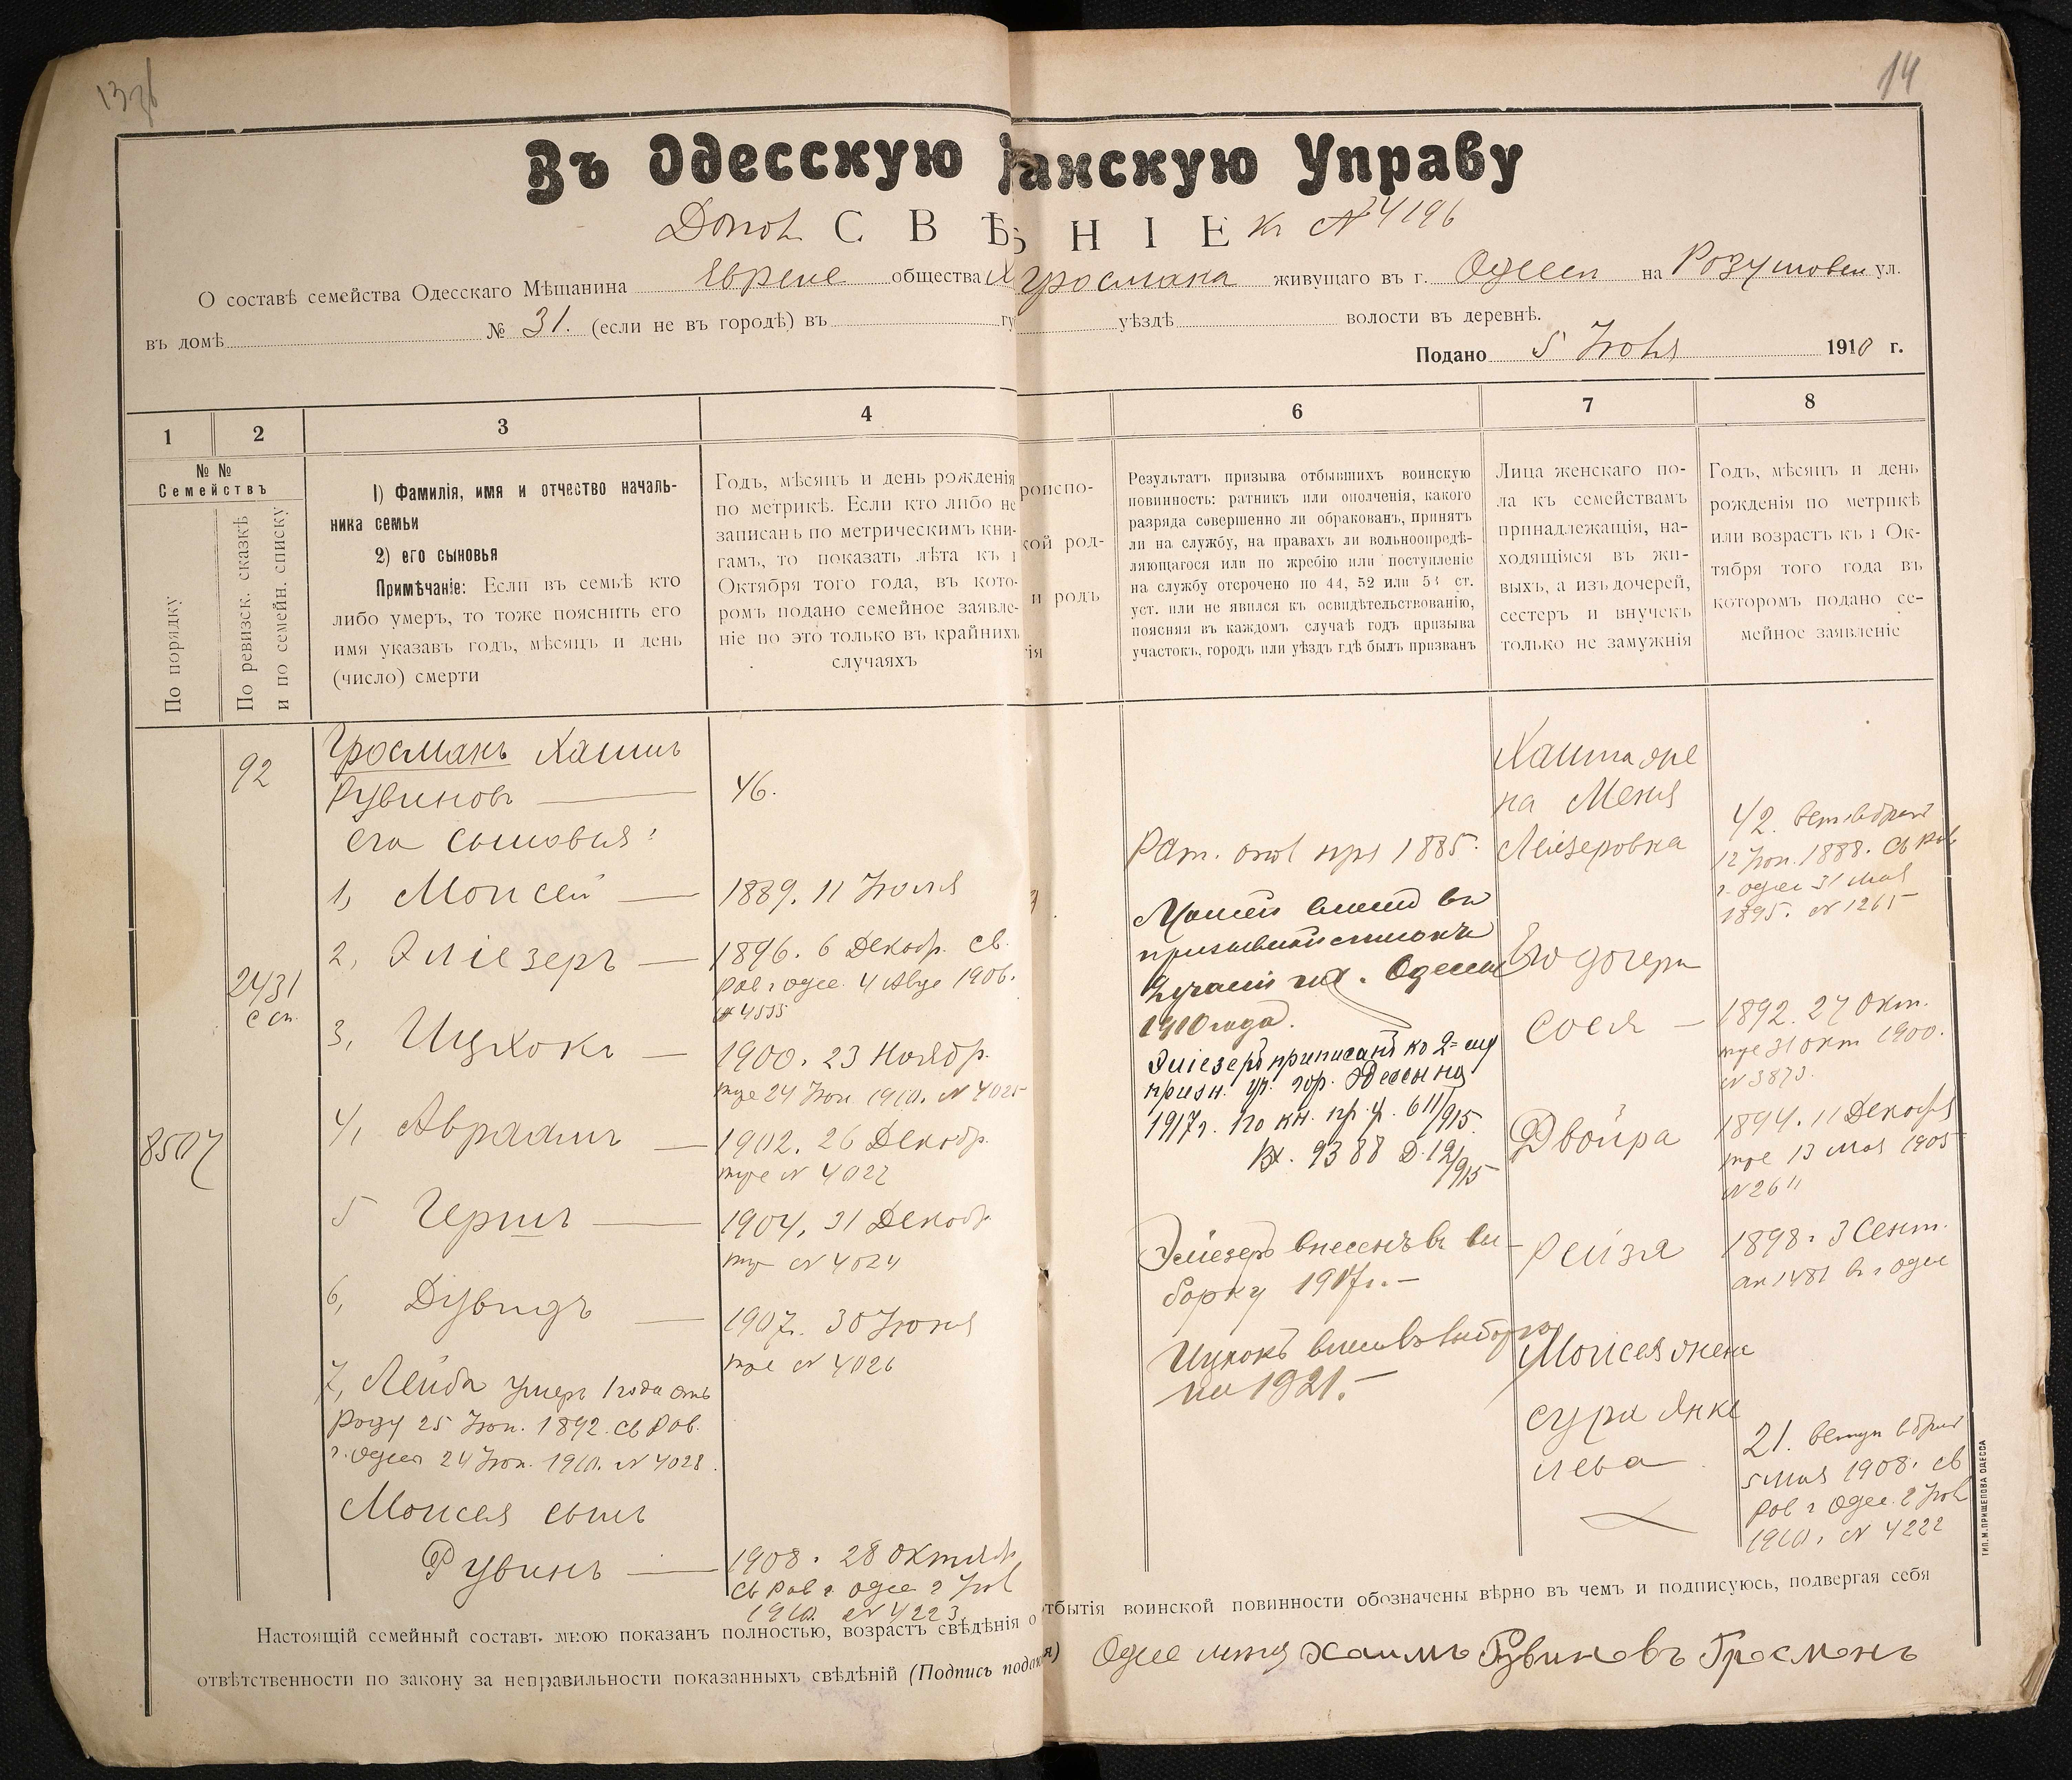 14
Въ Одесскую
анскую Управу
С В Ѣ
Н І Е къ № 4196
О составѣ семейства Одесскаго Мѣщанина Еврейс общества
Гросмана живущаго въ г. Одессѣ на ул.
въ домѣ № 31. (если не въ городѣ) въ
уѣздѣ волости въ деревнѣ.
Подано 5 1910 г.
1
2
3
4
6
7
8
№ №
Семействъ
По порядку
По ревизск. сказкѣ
и по семейн. списку
1) Фамилія, имя и отчество началь-
ника семьи
2) его сыновья
Примѣчаніе: Если въ семьѣ кто
либо умеръ, то тоже пояснить его
имя указавъ годъ, мѣсяцъ и день
(число) смерти
Годъ, мѣсяцъ и день рожденія
по метрикѣ. Если кто либо не
записанъ по метрическимъ кни-
гамъ, то показать лѣта къ 1
Октября того года, въ кото-
ромъ подано семейное заявле-
ніе но это только въ крайнихъ
случаяхъ
роиспо-
кой род-
и родъ
тія
Результатъ призыва отбывшихъ воинскую
повинность: ратникъ или ополченія, какого
разряда совершенно ли обракованъ, принятъ
ли на службу, на правахъ ли вольноопредѣ-
ляющагося или по жребію или поступленіе
на службу отсрочено по 44, 52 или 53 ст.
уст. или не явился къ освидѣтельствованію,
поясняя въ каждомъ случаѣ годъ призыва
участокъ, городъ или уѣздъ гдѣ былъ призванъ
Лица женскаго по-
ла къ семействамъ
принадлежащія, на-
ходящіяся въ жи-
выхъ, а изъ дочерей,
сестеръ и внучекъ
только не замужнія
Годъ, мѣсяцъ и день
рожденія по метрикѣ
или возрастъ къ 1 Ок-
тября того года въ
которомъ подано се-
мейное заявленіе
92
2431
с сп.
8507
Гросманъ Хаимъ
Рувиновъ
его сыновья:
1, Моисей
2, Эліезеръ
3, Ицхокъ
4, Авраамъ
5 Гершъ
6, Дувидъ
7, Лейба умеръ 1 года отъ
роду 25 Іюн. 1892. св Рав.
г. Одессы 24 Іюн. 1910. № 4028.
Моисея сынъ
Рувинъ
46.
1889. 11 Іюля
1896. 6 Декабр. св.
рав г Одес. 4 Авгу 1906.
№ 4535
1900. 23 Ноябр.
тоже 24 Іюн 1910. № 4025
1902. 26 Декабр.
тоже № 4027
1904. 31 Декабр.
№ 4024
1907. 30 Іюня
тоже № 4026
1908. 28 Октябр.
св рав г Одес 2 Іюл
1910. № 4223.
Рат. опол при 1885.
Моисей внесенъ въ
призывной списокъ
гор. Одессы
1910 года.
Эліезеръ приписанъ ко 2-му
призн. уч. гор. Одессы на
1917 г. По кн. пр. у. 611/915.
Вх. 9388 Д. 12/915
Эліезеръ внесенъ въ вы-
борку 1917 г.
Ицхокъ внесенъ въ выборку
на 1921.
Хаима же
на Меня
Лейзеровна
Его дочери
Сося
Двойра
Рейзя
Моисея жена
Сура Янке
лева
42. вст. въ бракъ
12 Іюн. 1888. св рав
г. Одес 31 Мая
1895. № 1265
1892. 27 Окт.
тоже 31 Окт 1900.
№ 3873.
1894. 11 Декабря
тоже 13 Мая 1905
№ 2611
1898. 3 Сент.
1481 в г Одес
21. вступ въ бракъ
5 Мая 1908. св
рав г Одес. 2 Іюл
1910. № 4222
Настоящій семейный составъ мною показанъ полностью, возрастъ свѣдѣнія о
отбытія воинской повинности обозначены вѣрно въ чемъ и подписуюсь, подвергая себя
отвѣтственности по закону за неправильности показанныхъ свѣдѣній (Подпись
Хаимъ Рувиновъ Гросманъ
ТИП. М. ПРИЩЕПОВА ОДЕССА